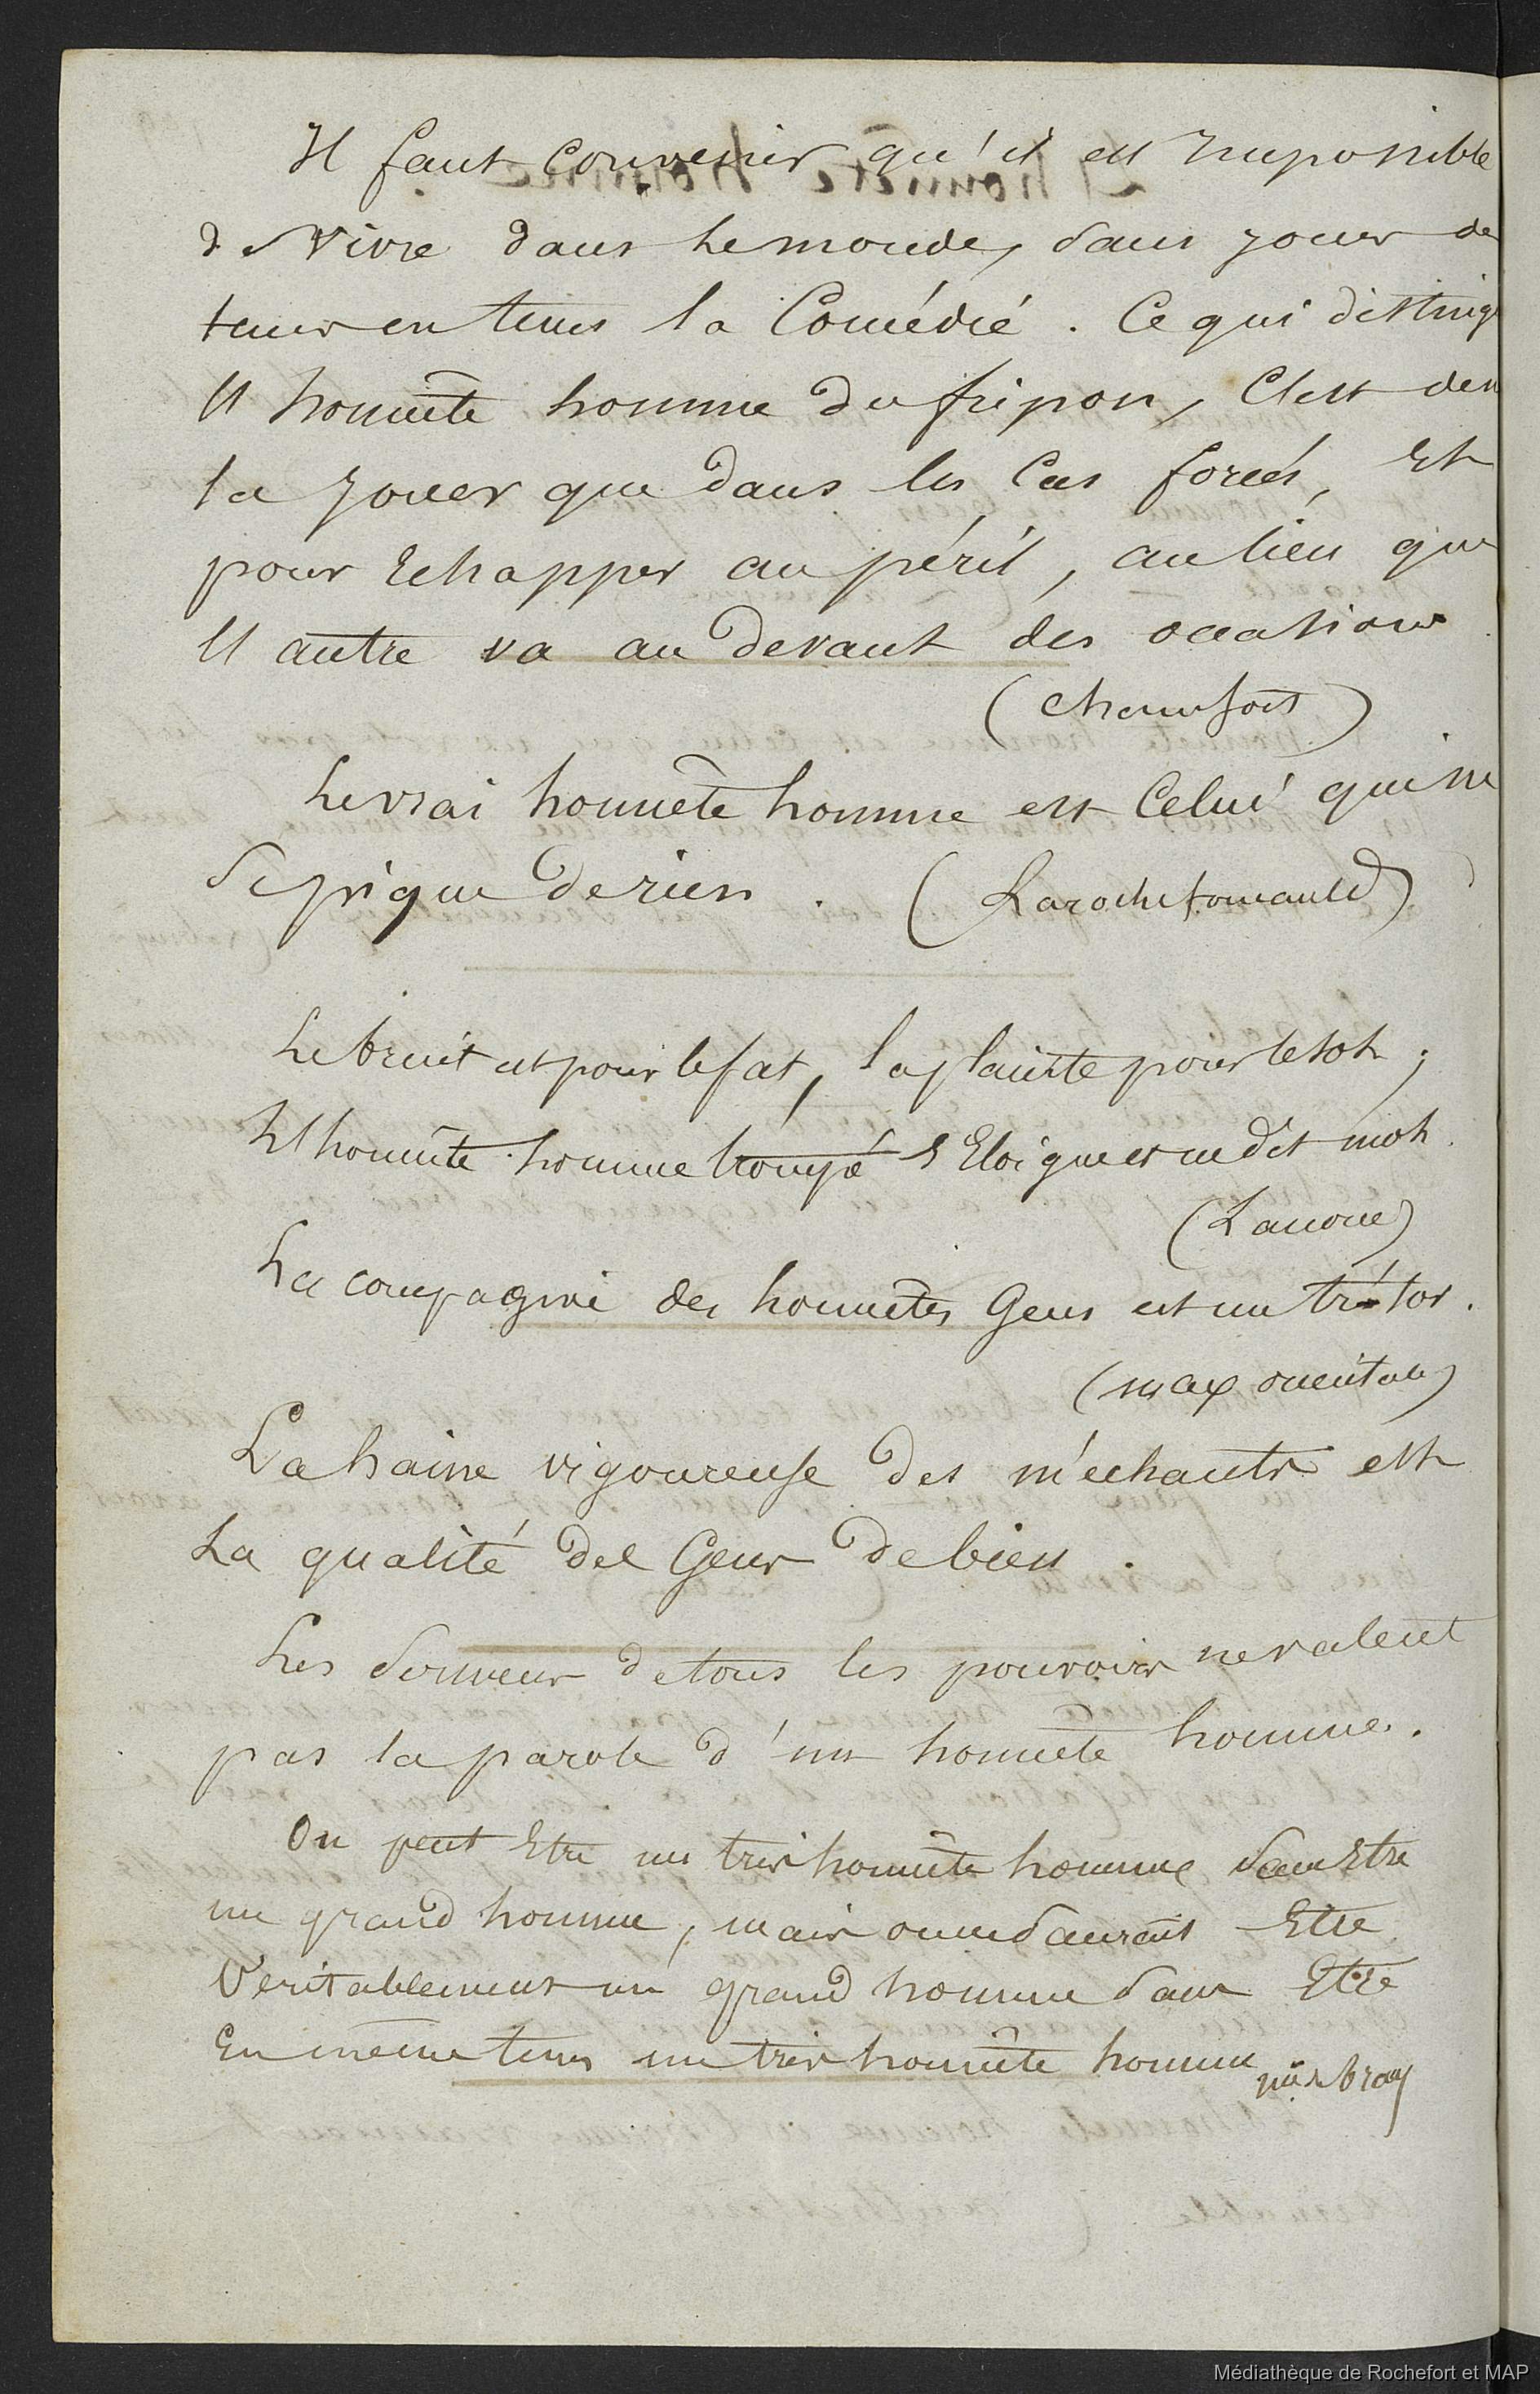 Il faut convenir qu'il est Impossible
de Vivre dans le monde, sans jouer de
tems en tems la Comédie. Ce qui disting
l'honnête homme du fripon, C'est de n
la jouer que dans les Cas forcés, Et
pour Echapper au péril, au lieu que
l'autre va au devant des occasions
(Chamfort)
Le vrai honnête homme est Celui qui ne
se pique de rien. (Larochefoucauld)
Le bruit est pour le fat, la plainte pour le sot;
L'honnête homme trompé s'Eloigne et ne dit mot.
(Lanoue)
La compagnie des honnêtes Gens est un trésor.
(max orientale)
La haine vigoureuse des méchants est
La qualité des Gens de bien.
Les de tous les pouvoirs ne valent
pas la parole d'un honnête homme.
On peut Etre un très honnête homme sans Etre
un grand homme, mais on ne saurait Etre
Veritablement un grand homme sans Etre
En même tems un très honnête homme